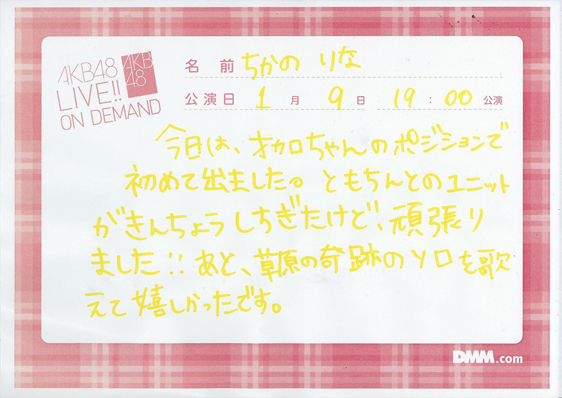 AKB48
LIVE!!
ON DEMAND
AKB
48
名前 ちかの りな
公演日 1月 9日 19:00 公演
今日は、オカロちゃんのポジションで
初めて出ました。ともちんとのユニット
がきんちょうしちぎたけど、頑張り
ました!!あと、草原の奇跡のソロを歌
えて嬉しかったです。
DMM.com